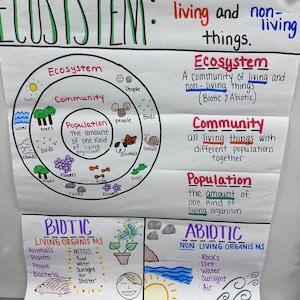 ECOSYSTEM:
living and non-
living
things.
Ecosystem
People
Sun
Community
water
trees
people
birds
Population
the amount
of one kind
of living
animals
soil
trees
birds
rocks
Ecosystem
A community of living and
non-living things
(Biotic & Abiotic)
Community
all living things with
different populations
together
Population
the amount of
one kind of
living organism
BIOTIC
LIVING ORGANISMS
Animals
Plants
People
Bacteria
NEEDS:
Food
water
Sunlight
Air
Shelter
ABIOTIC
NON LIVING ORGANISMS
Rocks
Dirt
Water
Sunlight
Air